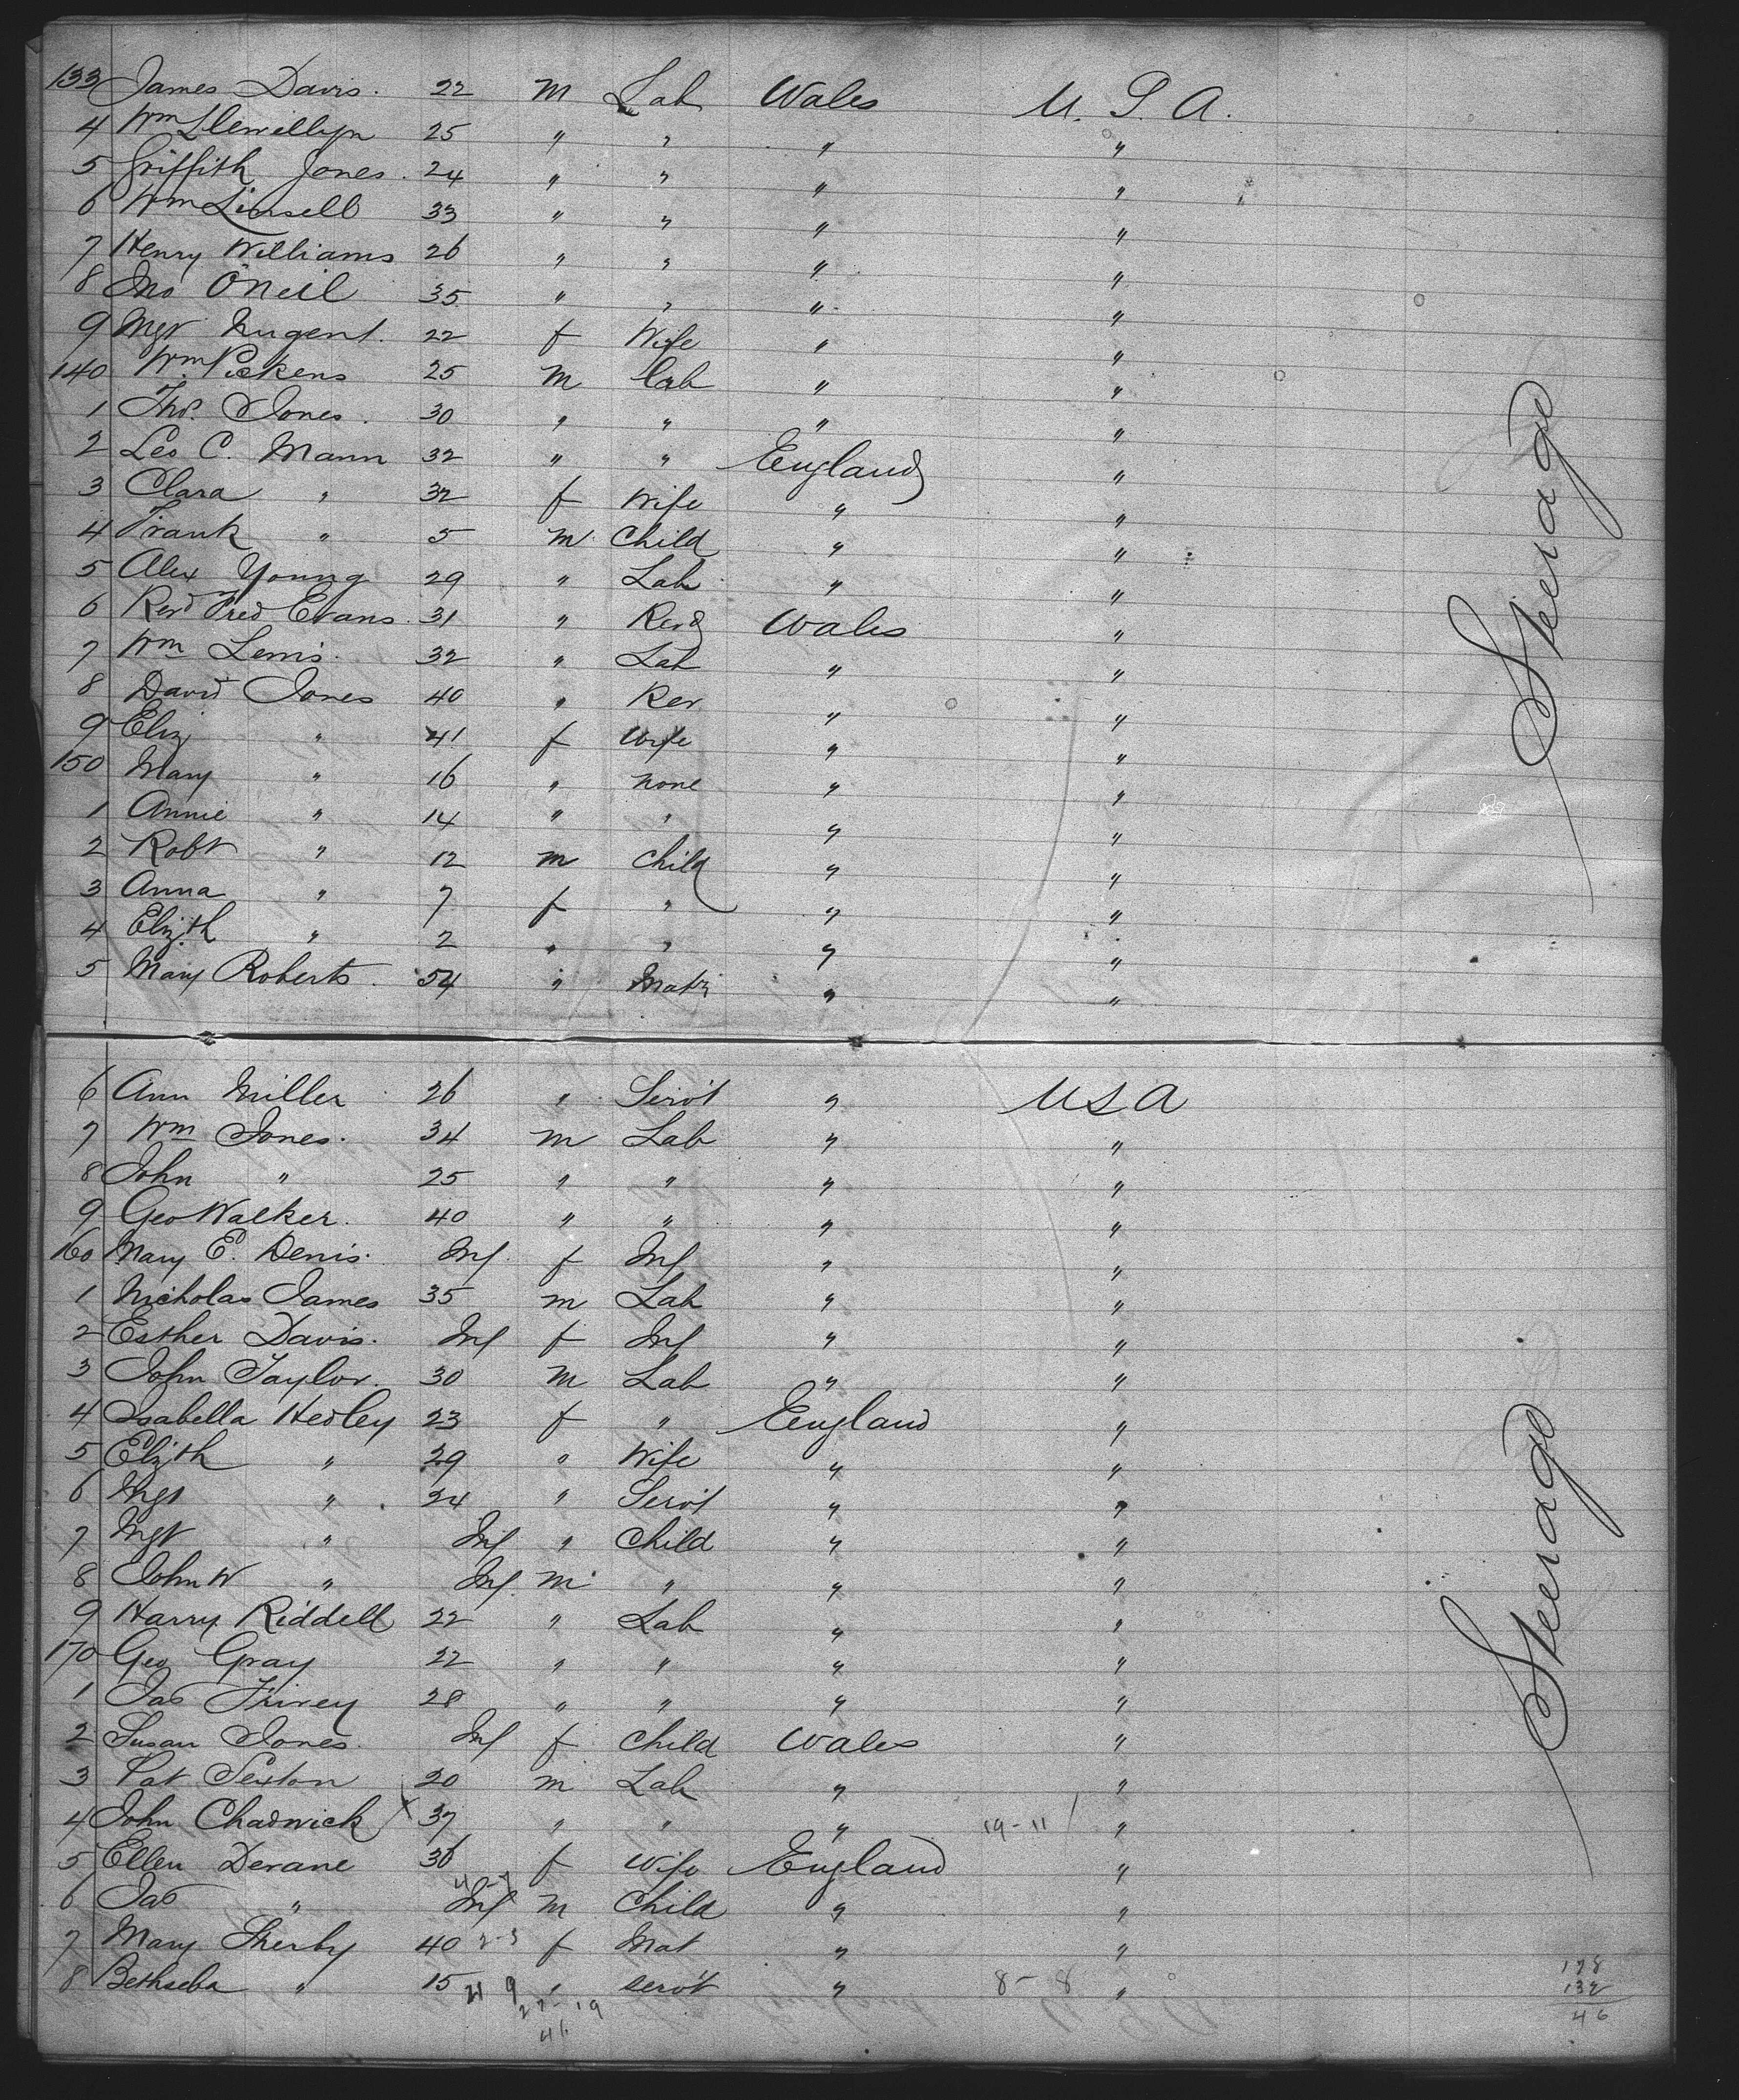 133 James Davis. 22 m Lab Wales U. S. A.
4 Wm Llewellyn 25 " " " "
5 Griffith Jones. 24 " " " "
6 Wm Linsell 33 " " " "
7 Henry Williams 26 " " " "
8 Jno O'Neil 35 " " " "
9 Mgt Nugent. 22 f Wife " "
140 Wm Pickens 25 m Lab " "
1 Thos. Jones. 30 " " " "
2 Leo C. Mann 32 " " England "
3 Clara " 32 f Wife " "
4 Frank " 5 m Child " "
5 Alex Young 29 " Lab " "
6 Revd Fred Evans. 31 " Revd Wales "
7 Wm Lewis. 32 " Lab " "
8 David Jones 40 " Rev " "
9 Eliz " 41 f Wife " "
150 Mary " 16 " none " "
1 Annie " 14 " " " "
2 Robt " 12 m Child " "
3 Anna " 7 f " " "
4 Elizth " 2 " " " "
5 Mary Roberts. 54 " Matn " "
Steerage
6 Ann Miller 26 " Servt " U S A
7 Wm Jones. 34 m Lab " "
8 John " 25 " " " "
9 Geo Walker. 40 " " " "
160 Mary E. Denis. Inf. f Inf " "
1 Nicholas James 35 m Lab " "
2 Esther Davis. Inf f Inf " "
3 John Taylor. 30 m Lab " "
4 Isabella Hedley 23 f " England "
5 Elizth " 29 " Wife " "
6 Mgt " 24 " Servt " "
7 Mgt " Inf " Child " "
8 John W " Inf. m " " "
9 Harry Riddell 22 " Lab " "
170 Geo Gray 22 " " " "
1 Jas 28 " " " "
2 Susan Jones. Inf f Child Wales "
3 Pat Sexton 20 m Lab " "
4 John Chadwick x 37 " " " 19-11 / "
5 Ellen Devane 36 f Wife England "
6 Jas " Inf m Child " "
7 Mary Sherby 40 2-3 f Mat " "
8 Bethseba " 15 21 9 " servt " 8-8 "
27-19
46
178
132
46
Steerage